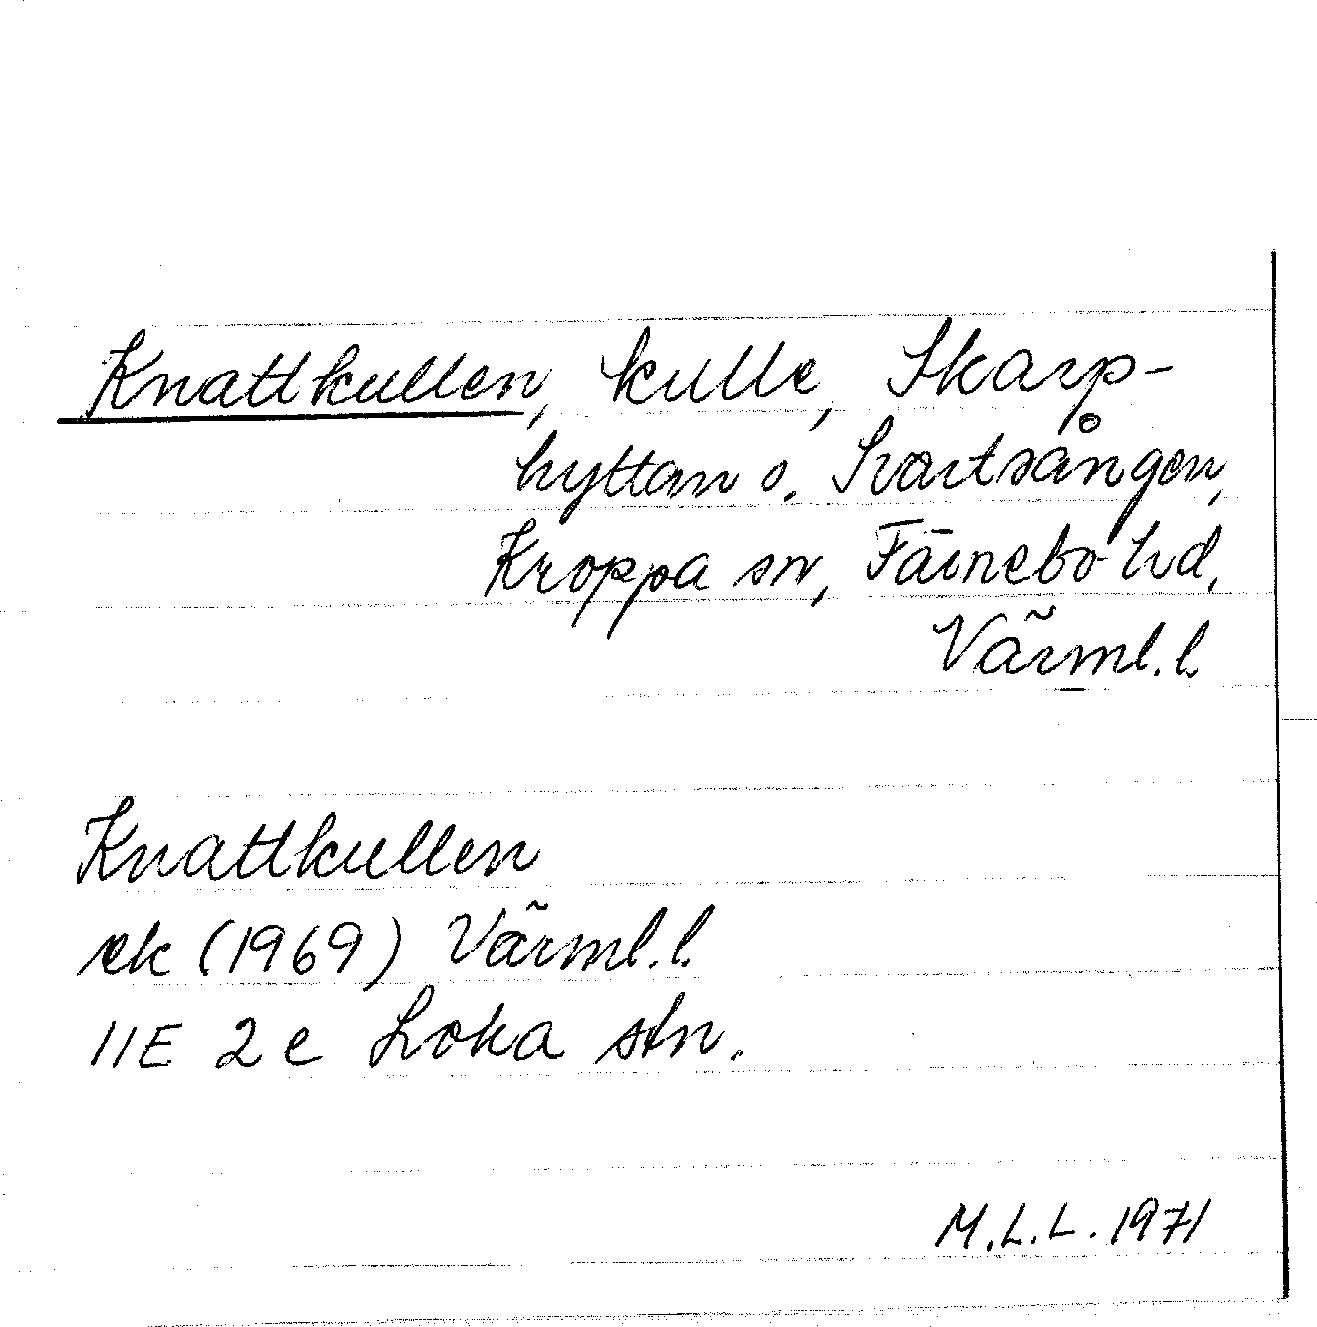 Knattkullen, kulle, Skarp-
hyttan o. Svartsången,
Kroppa sn, Färnebo hd,
Värml. l.
Knattkullen
ek (1969) Värml. l.
11E 2e Loka stn.
M.L.L. 1971